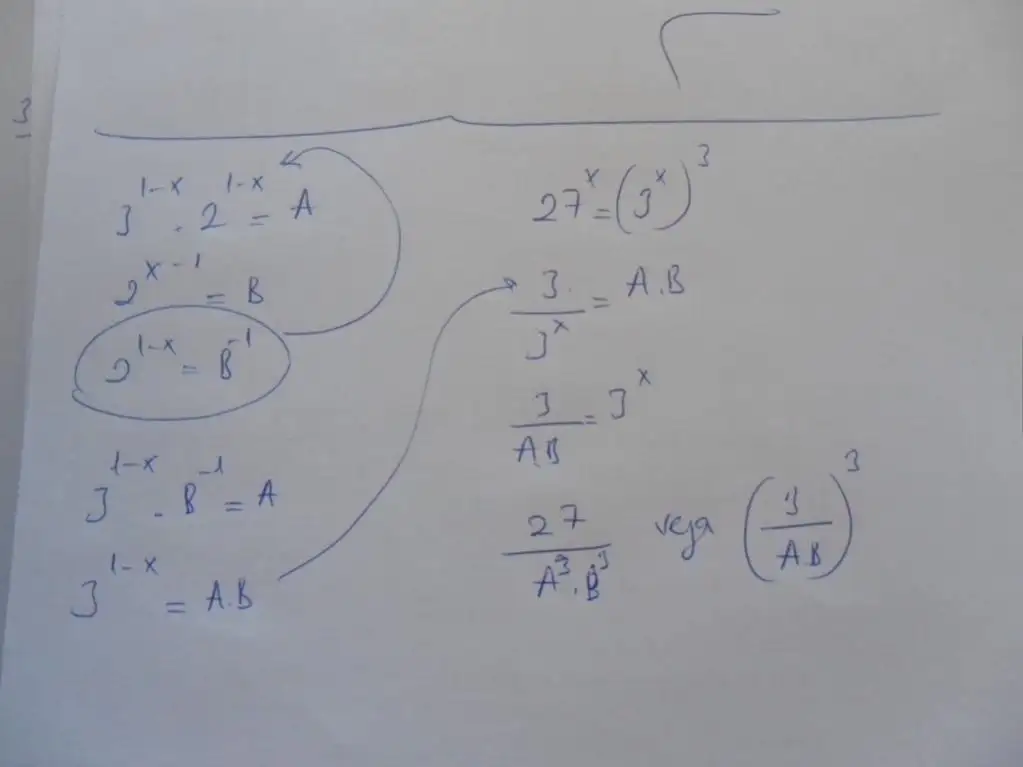 3
3^{1-x} . 2^{1-x} = A
2^{x-1} = B
2^{1-x} = B^{-1}
3^{1-x} . B^{-1} = A
3^{1-x} = A.B
27^x = (3^x)^3
3/3^x = A.B
3/AB = 3^x
27/A^3.B^3 veya (3/AB)^3